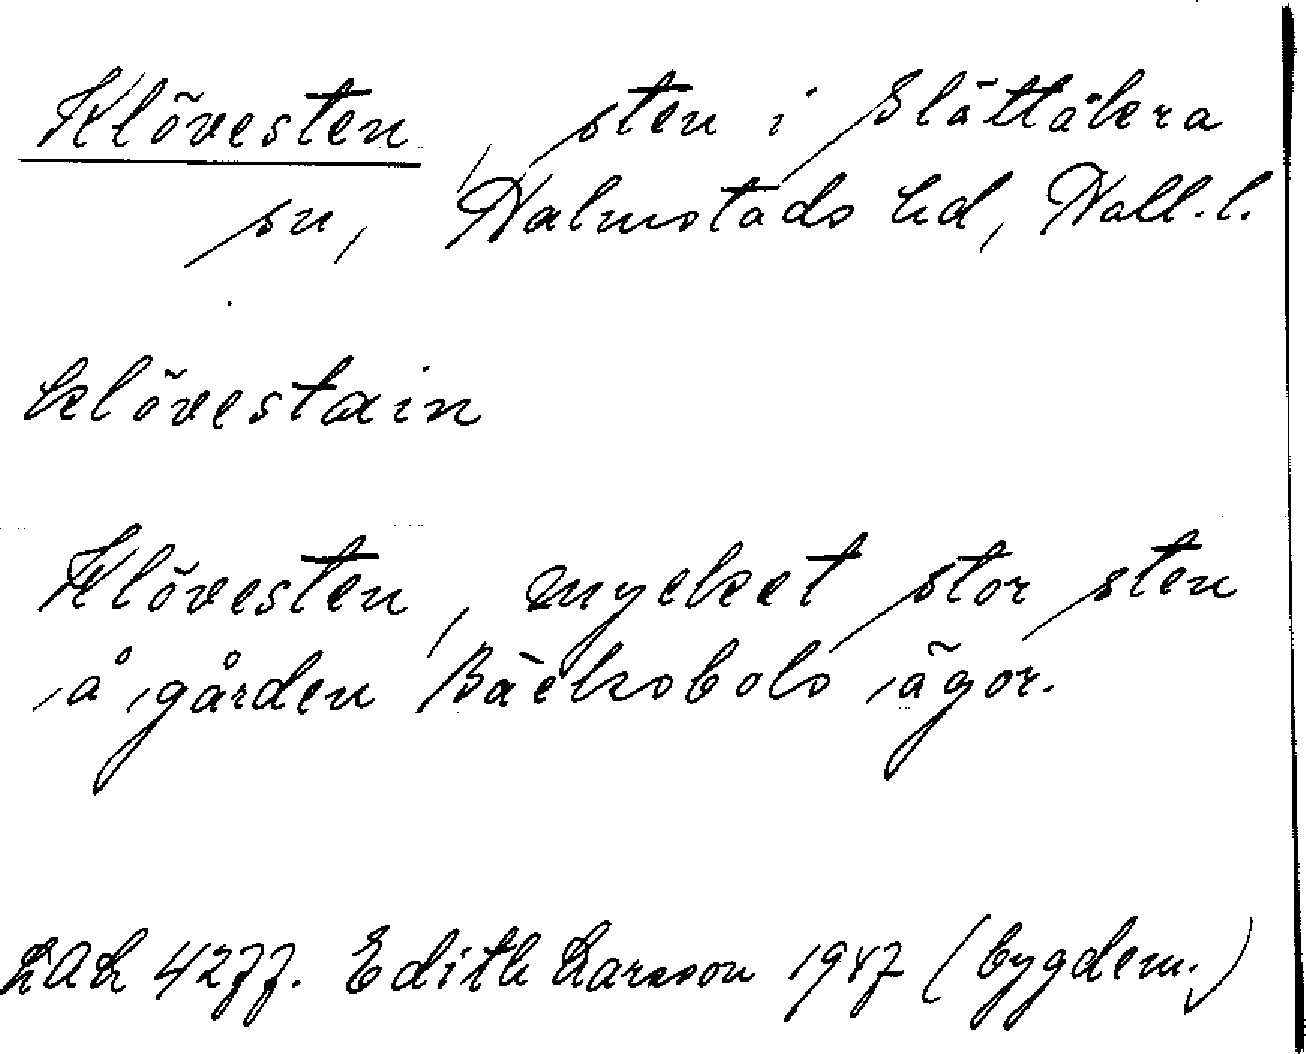 Klövesten, sten i Slättåkra
sn, Halmstads hd, Hall.l.
klövestain
Klövesten, mycket stor sten
å gården Bäcksbols ägor.
LAL 4277. Edith Larsson 1947 (bygdem.)